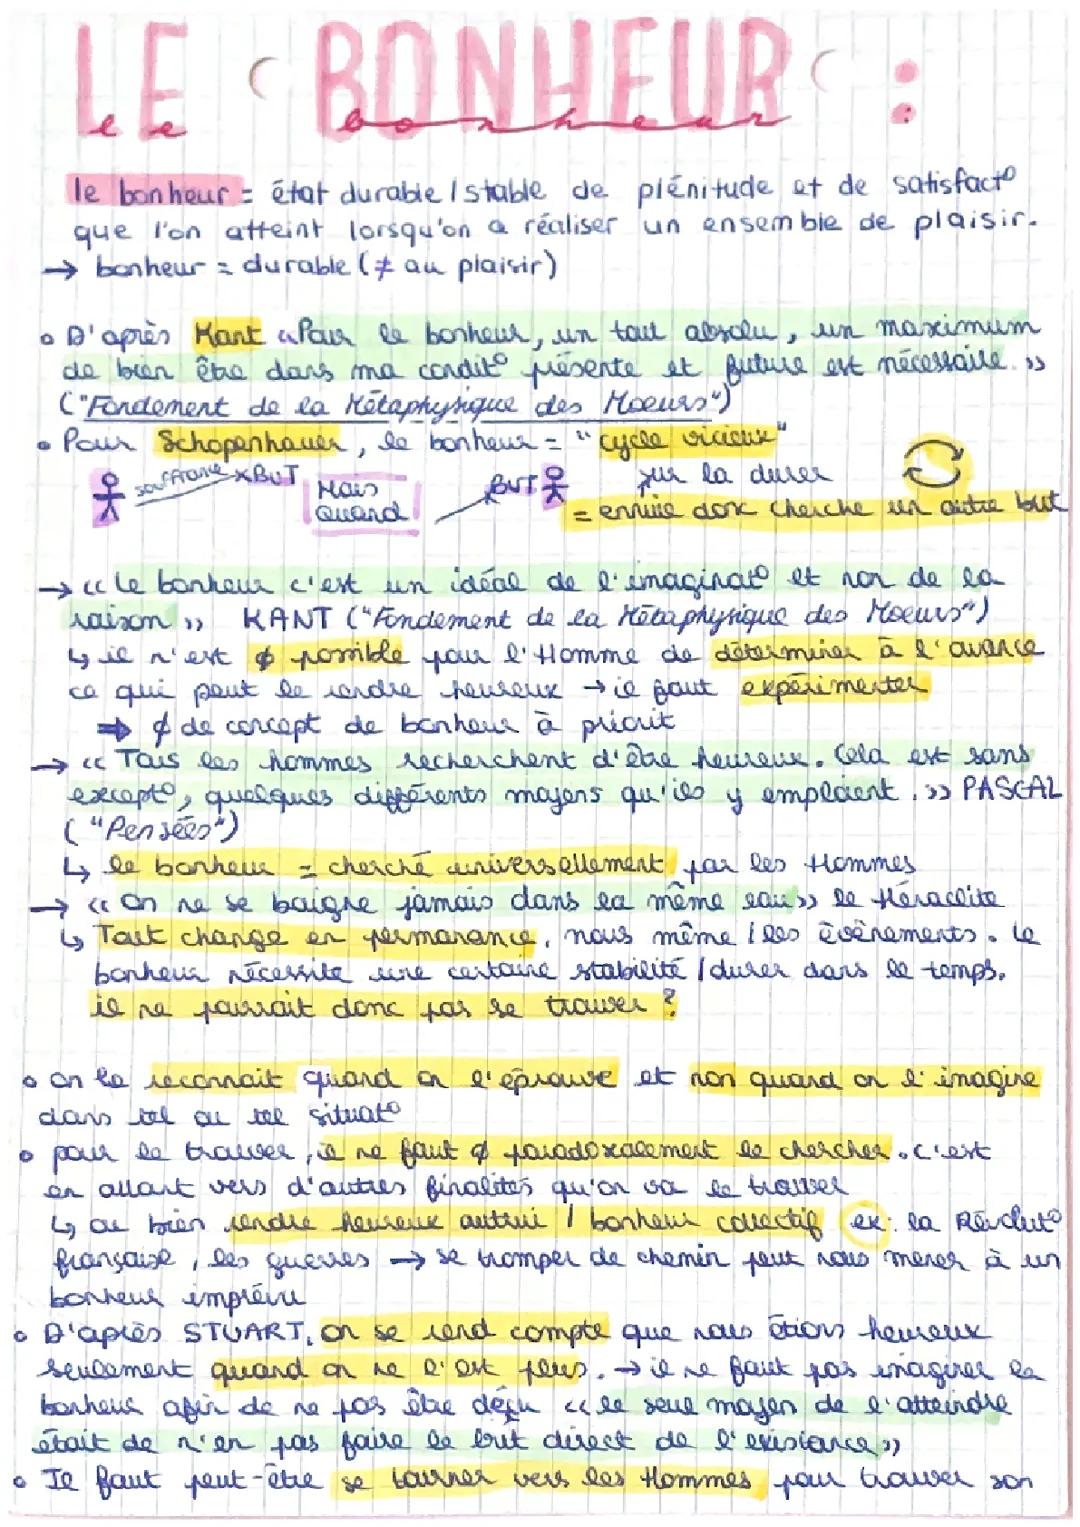 LE BONHEUR :
le bonheur
le bonheur = état durable / stable de plénitude et de satisfact°
que l'on atteint lorsqu'on a réaliser un ensemble de plaisir.
→ bonheur = durable (≠ au plaisir)
• D'après Kant « Pour le bonheur, un tout absolu, un maximum
de bien être dans ma condit° présente et future est nécessaire. »
("Fondement de la Métaphysique des Moeurs")
• Pour Schopenhauer, le bonheur = "cycle vicieux"
souffrance × BUT Mais BUT sur la durer
Quand = ennuie donc cherche un autre but
→ « Le bonheur c'est un idéal de l'imaginat° et non de la
raison » KANT ("Fondement de la Métaphysique des Moeurs")
↳ il n'est ∅ possible pour l'Homme de déterminer à l'avance
ce qui peut le rendre heureux → il faut expérimenter
⇒ ∅ de concept de bonheur à priorit
→ « Tous les hommes recherchent d'être heureux. Cela est sans
except°, quelques différents moyens qu'ils y emploient. » PASCAL
("Pensées")
↳ le bonheur = cherché universellement par les Hommes
→ « On ne se baigne jamais dans la même eau » de Héraclite
↳ Tout change en permanance, nous même / les évènements. Le
bonheur nécessite une certaine stabilité / durer dans le temps.
il ne pourrait donc pas se trouver ?
• on le reconnait quand on l'éprouve et non quand on l'imagine
dans tel ou tel situat°
• pour le trouver, il ne faut ∅ paradoxalement le chercher. C'est
en allant vers d'autres finalités qu'on va le trouver
↳ ou bien rendre heureux autrui / bonheur collectif ex: la Révolut°
française, les guerres → se tromper de chemin peut nous mener à un
bonheur imprévu
• D'après STUART, on se rend compte que nous étions heureux
seulement quand on ne l'est plus. → il ne faut pas imaginer le
bonheur afin de ne pas être déçu « le seul moyen de l'atteindre
était de n'en pas faire le but direct de l'existance »
• Il faut peut-être se tourner vers les Hommes pour trouver son